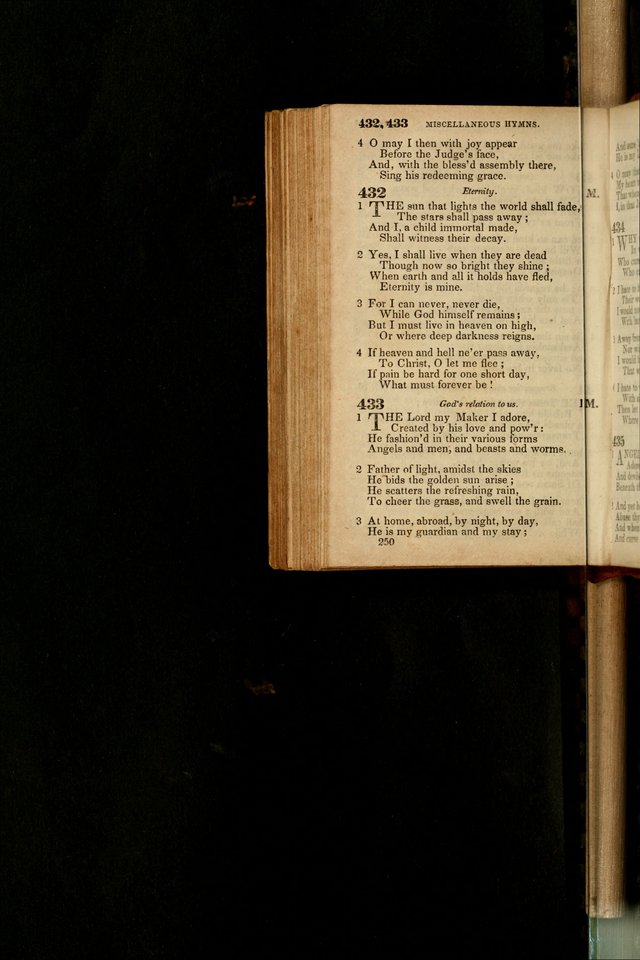 432, 433 MISCELLANEOUS HYMNS.
4 O may I then with joy appear
Before the Judge's face,
And, with the bless'd assembly there,
Sing his redeeming grace.
432 Eternity. M.
1 THE sun that lights the world shall fade,
The stars shall pass away ;
And I, a child immortal made,
Shall witness their decay.
2 Yes, I shall live when they are dead
Though now so bright they shine ;
When earth and all it holds have fled,
Eternity is mine.
3 For I can never, never die,
While God himself remains ;
But I must live in heaven on high,
Or where deep darkness reigns.
4 If heaven and hell ne'er pass away,
To Christ, O let me flee ;
If pain be hard for one short day,
What must forever be !
433 God's relation to us. M.
1 THE Lord my Maker I adore,
Created by his love and pow'r :
He fashion'd in their various forms
Angels and men, and beasts and worms.
2 Father of light, amidst the skies
He bids the golden sun arise ;
He scatters the refreshing rain,
To cheer the grass, and swell the grain.
3 At home, abroad, by night, by day,
He is my guardian and my stay ;
250
434
435